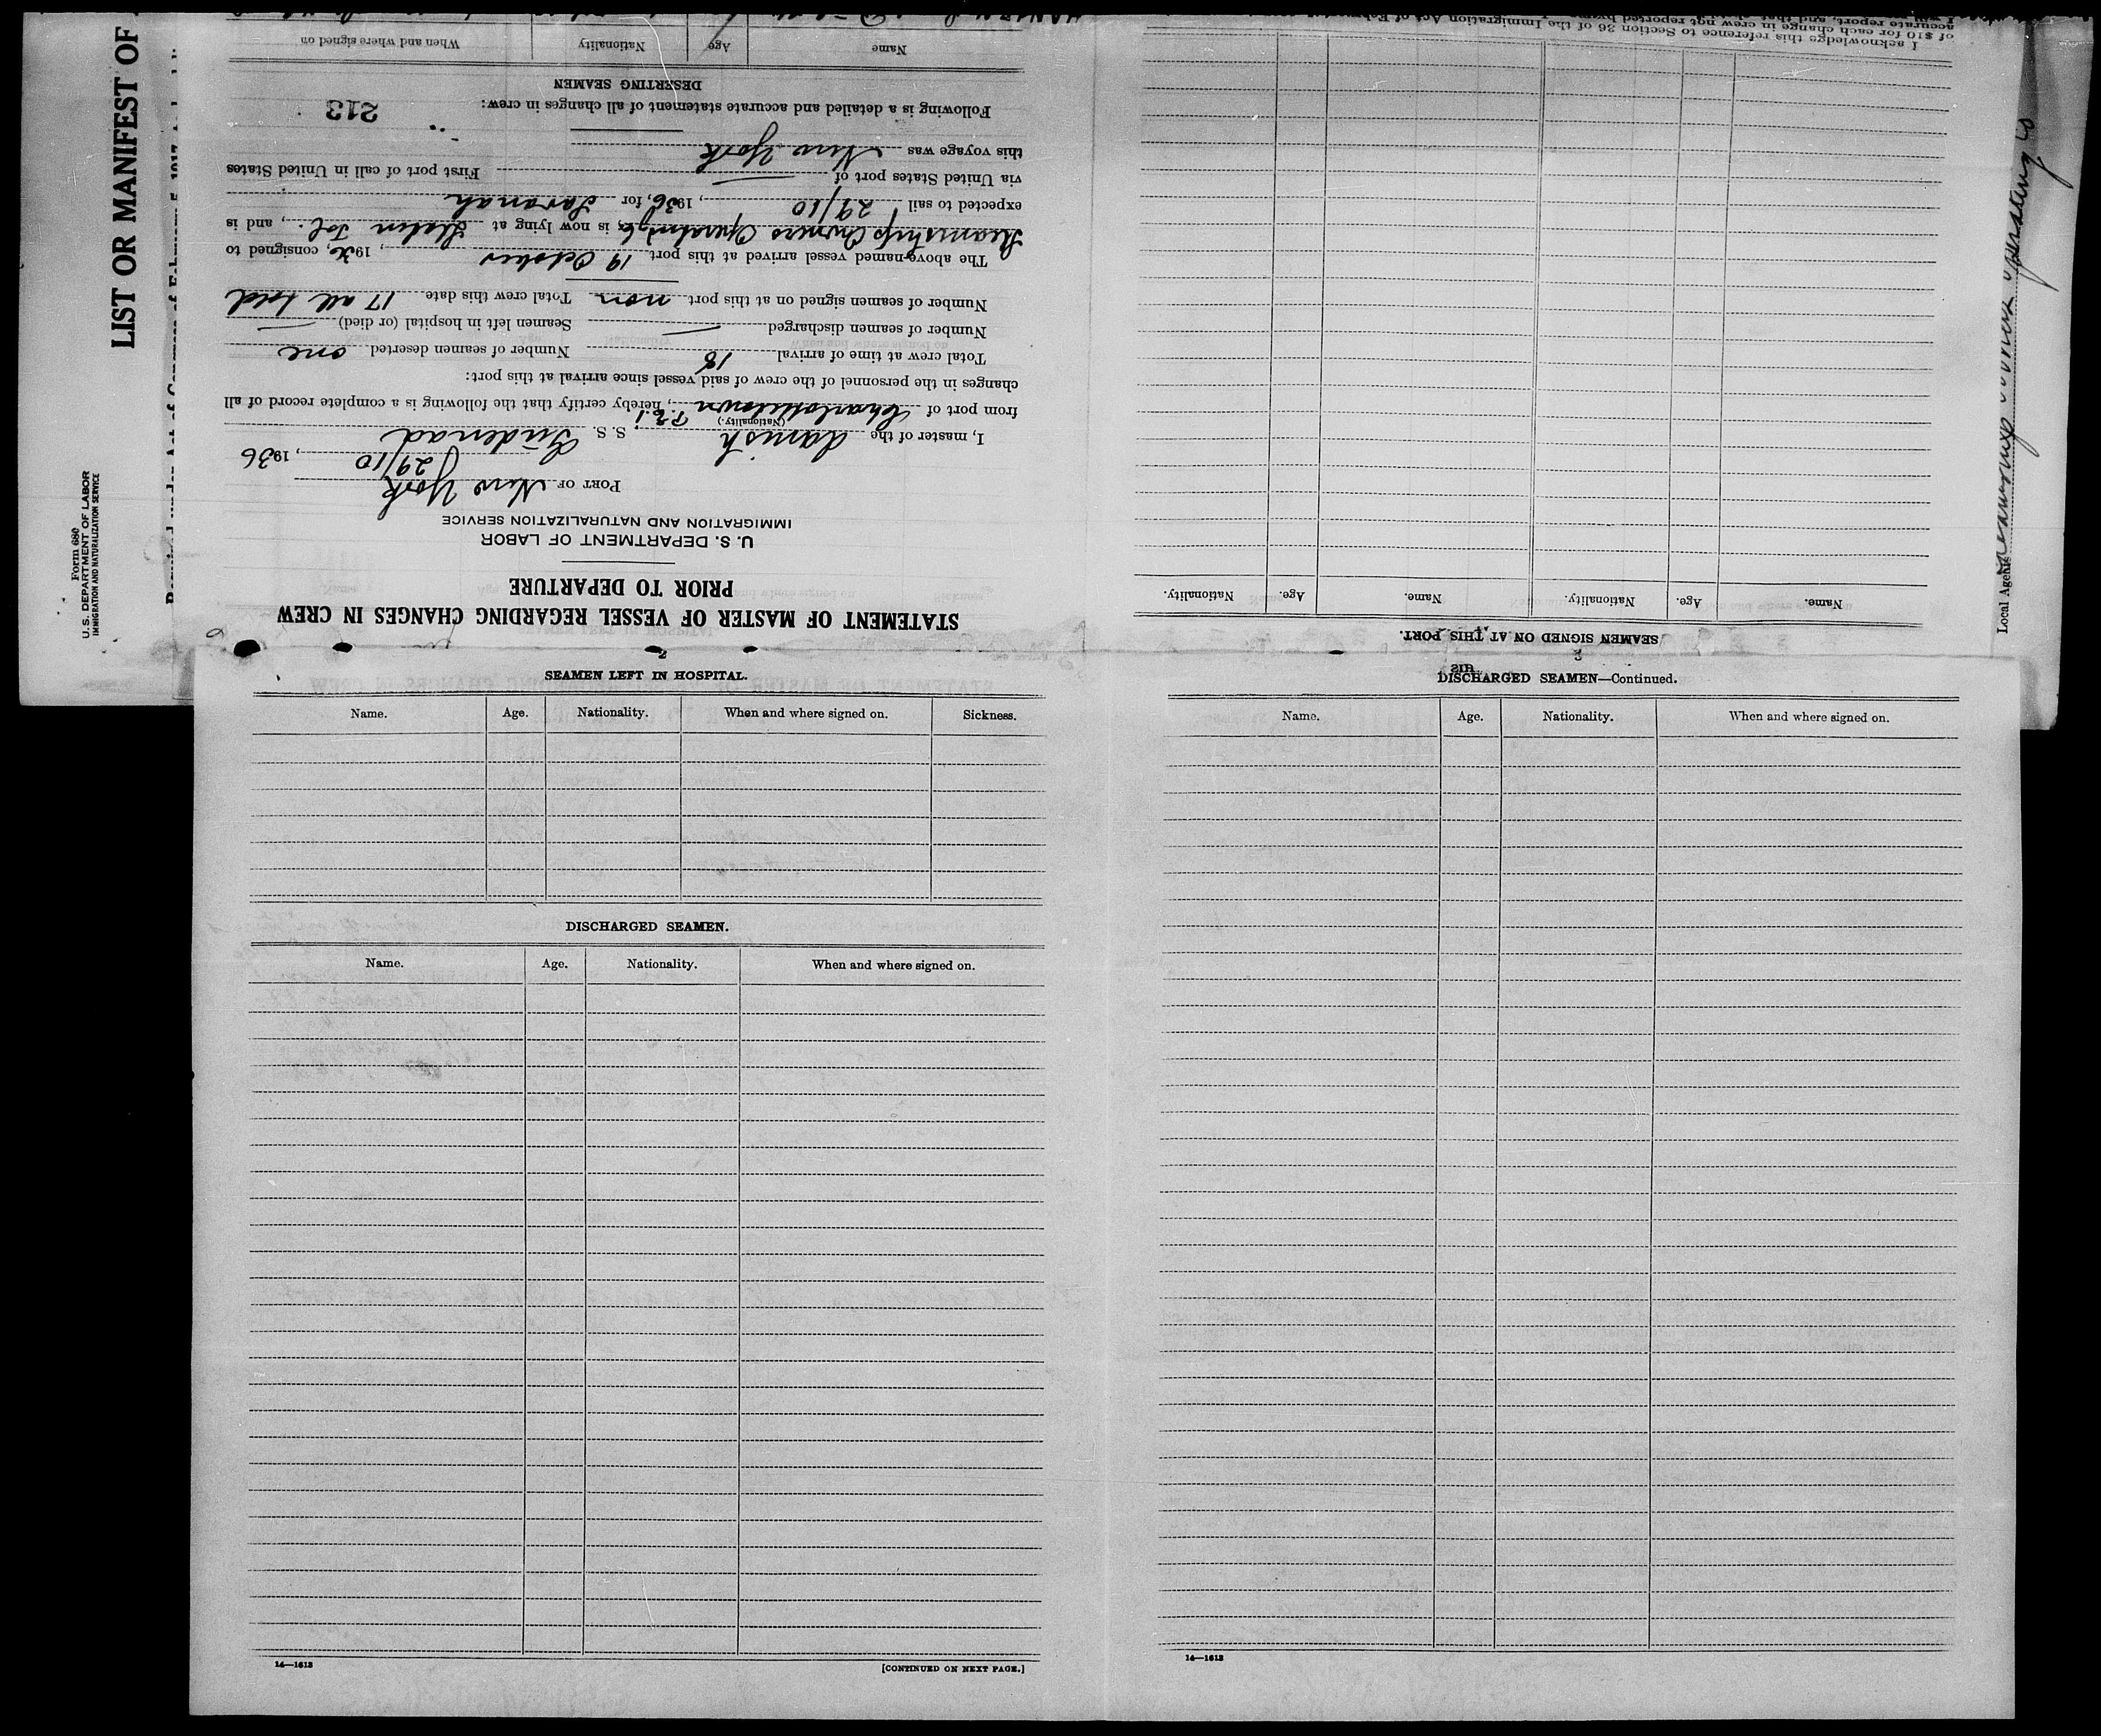 Form 680
U. S. DEPARTMENT OF LABOR
IMMIGRATION AND NATURALIZATION SERVICE
LIST OR MANIFEST OF
STATEMENT OF MASTER OF VESSEL REGARDING CHANGES IN CREW
PRIOR TO DEPARTURE
U. S. DEPARTMENT OF LABOR
IMMIGRATION AND NATURALIZATION SERVICE
PORT OF New York
29/10, 1936
I, master of the danish S. S.
(Nationality.)
from port of Charlottetown P.E.I, hereby certify that the following is a complete record of all
changes in the personnel of the crew of said vessel since arrival at this port:
Total crew at time of arrival 18 Number of seamen deserted one
Number of seamen discharged — Seamen left in hospital (or died) —
Number of seamen signed on at this port non Total crew this date 17 all told
The above-named vessel arrived at this port 19 October, 1936, consigned to
Steamship Owners Operating Co, is now lying at, and is
expected to sail 29/10, 1936, for Savanah
via United States port of — First port of call in United States
this voyage was New York
Following is a detailed and accurate statement of all changes in crew:
213
DESERTING SEAMEN
Name Age Nationality When and where signed on
SEAMEN SIGNED ON AT THIS PORT.
Name. Age. Nationality. Name. Age. Nationality.
I acknowledge this reference to Section 36 of the Immigration Act of February
of $10 for each change in crew not reported
accurate report, and that
Local Agents Steamship Owners Operating Co
SEAMEN LEFT IN HOSPITAL.
Name. Age. Nationality. When and where signed on. Sickness.
DISCHARGED SEAMEN.
Name. Age. Nationality. When and where signed on.
14—1613
[CONTINUED ON NEXT PAGE.]
DISCHARGED SEAMEN—Continued.
Name. Age. Nationality. When and where signed on.
14—1613